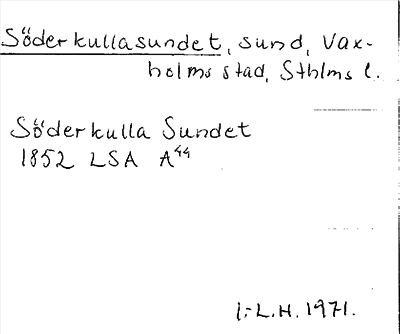 Söderkullasundet, sund, Vax-
holms stad, Sthlms l.
Söderkulla Sundet
1852 LSA A44
I:L.H. 1971.